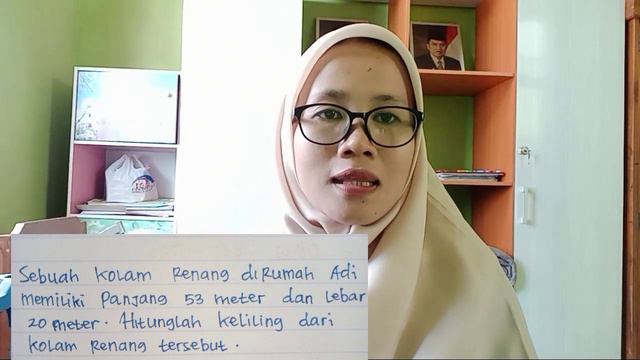 Sebuah Kolam Renang diRumah Adi
memiliki Panjang 53 meter dan Lebar
20 meter. Hitunglah Keliling dari
Kolam Renang tersebut.